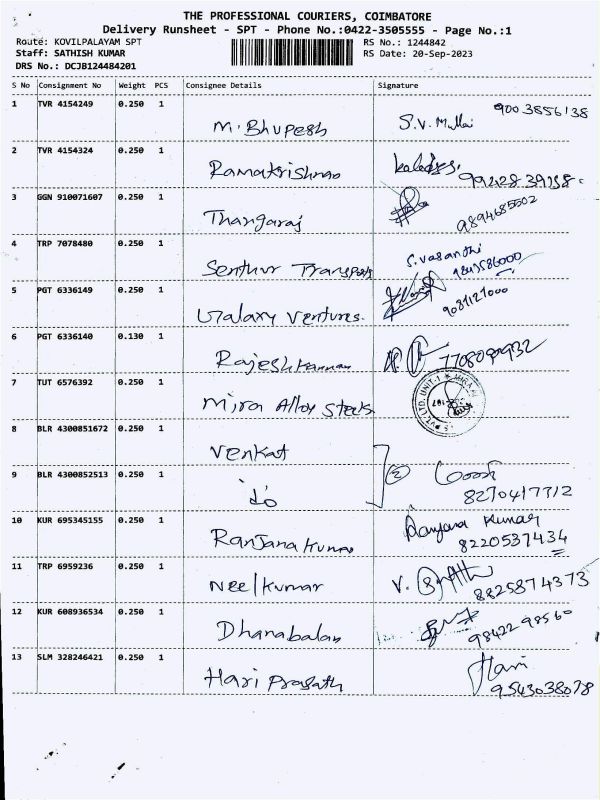 THE PROFESSIONAL COURIERS, COIMBATORE
Delivery Runsheet - SPT - Phone No.:0422-3505555 - Page No.:1
Route: KOVILPALAYAM SPT RS No.: 1244842
Staff: SATHISH KUMAR RS Date: 20-Sep-2023
DRS No.: DCJB124484201
S No Consignment No Weight PCS Consignee Details Signature
1 TVR 4154249 0.250 1 M. Bhupesh S.V. 9003856138
2 TVR 4154324 0.250 1 Ramakrishnan
3 GGN 910071607 0.250 1 Thangaraj 9894685502
4 TRP 7078480 0.250 1 Senthur Transports S. Vasanthi
5 PGT 6336149 0.250 1 Galaxy Ventures.
6 PGT 6336140 0.130 1 Rajeshkannan
7 TUT 6576392 0.250 1 Mira Alloy Steels
8 BLR 4300851672 0.250 1 Venkat
9 BLR 4300852513 0.250 1 do 2 8270417712
10 KUR 695345155 0.250 1 Ranjana Kumar Ranjana Kumar 8220537434
11 TRP 6959236 0.250 1 Neelkumar V. 8825874373
12 KUR 608936534 0.250 1 Dhanabalan 9842298560
13 SLM 328246421 0.250 1 Hari Prasath Hari 9543038078